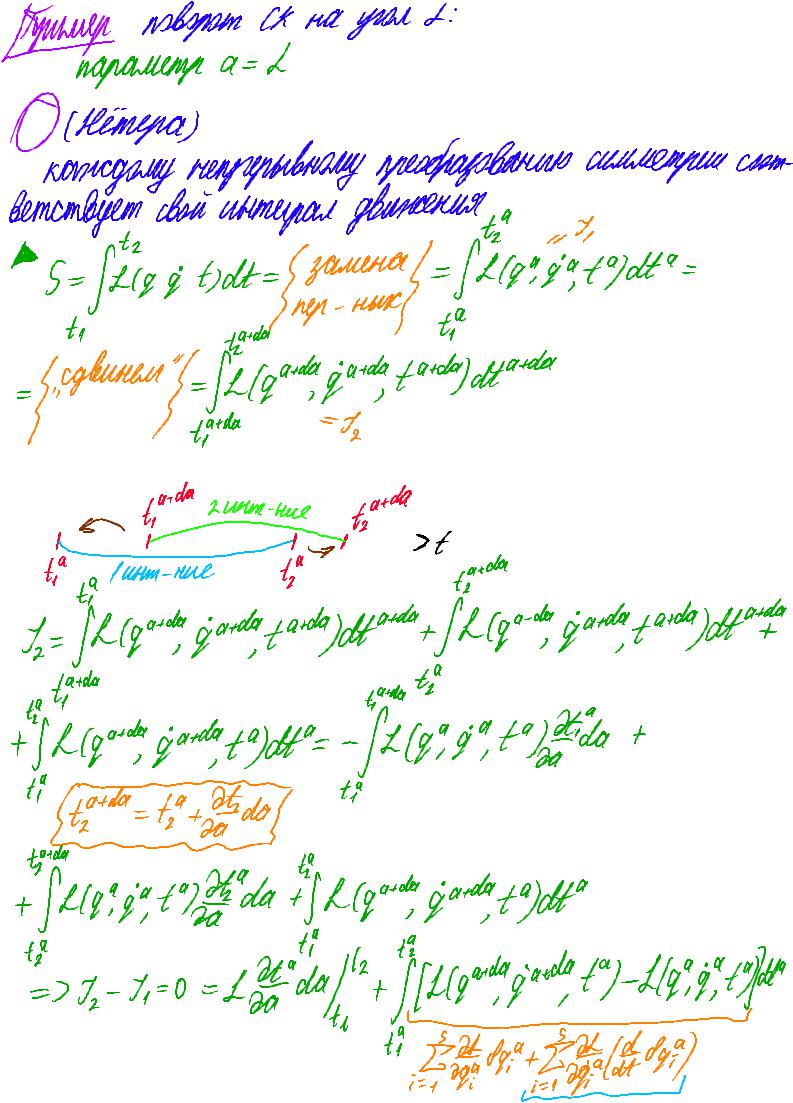 Пример поворот СК на угол α:
параметр a = α
О (Нётера)
каждому непрерывному преобразованию симметрии соот-
ветствует свой интеграл движения
▲ S = ∫_{t₁}^{t₂} L(q q̇ t)dt = {замена пер-ных} = ∫_{t₁^a}^{t₂^a} L(q^a, q̇^a, t^a)dt^a = " J₁
= {"сдвинем"} = ∫_{t₁^{a+da}}^{t₂^{a+da}} L(q^{a+da}, q̇^{a+da}, t^{a+da})dt^{a+da}
= J₂
t₁^{a+da} 2 инт-ние t₂^{a+da}
t₁^a 1 инт-ние t₂^a > t
J₂ = ∫_{t₁^{a+da}}^{t₁^a} L(q^{a+da}, q̇^{a+da}, t^{a+da})dt^{a+da} + ∫_{t₂^a}^{t₂^{a+da}} L(q^{a-da}, q̇^{a+da}, t^{a+da})dt^{a+da} +
+ ∫_{t₁^a}^{t₂^a} L(q^{a+da}, q̇^{a+da}, t^a)dt^a = - ∫_{t₁^a}^{t₁^{a+da}} L(q^a, q̇^a, t^a) ∂t₁^a/∂a da +
t₂^{a+da} = t₂^a + ∂t₂/∂a da
+ ∫_{t₂^a}^{t₂^{a+da}} L(q^a, q̇^a, t^a) ∂t₂^a/∂a da + ∫_{t₁^a}^{t₂^a} L(q^{a+da}, q̇^{a+da}, t^a)dt^a
=> J₂ - J₁ = 0 = L ∂t^a/∂a da |_{t₁}^{t₂} + ∫_{t₁^a}^{t₂^a} [L(q^{a+da}, q̇^{a+da}, t^a) - L(q^a, q̇^a, t^a)]dt^a
∑_{i=1}^{s} ∂L/∂q_i^a δq_i^a + ∑_{i=1}^{s} ∂L/∂q̇_i^a (d/dt δq_i^a)